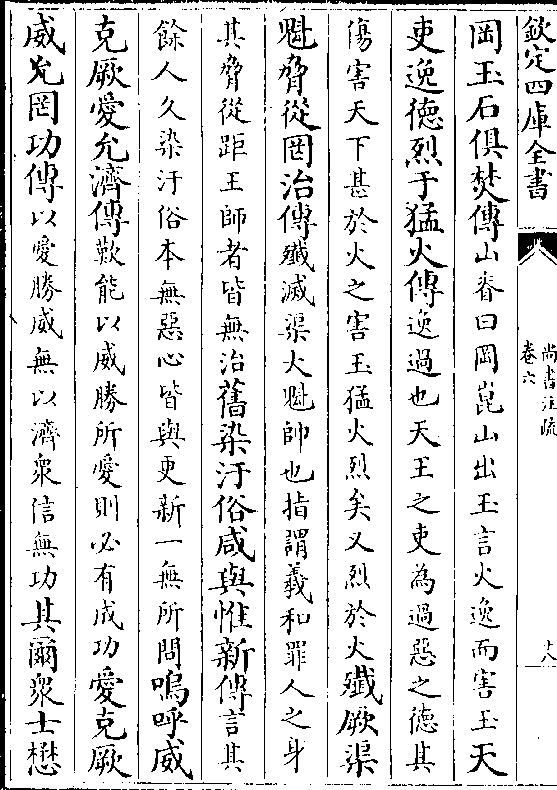 欽定四庫全書
尚書注疏
卷六
岡玉石俱焚傳山脊曰岡崑山出玉言火逸而害玉天
吏逸德烈于猛火傳逸過也天王之吏為過惡之德其
傷害天下甚於火之害玉猛火烈矣又烈於火殲厥渠
魁脅從罔治傳殲滅渠大魁帥也指謂羲和罪人之身
其脅從距王師者皆無治舊染汙俗咸與惟新傳言其
餘人久染汙俗本無惡心皆與更新一無所問嗚呼威
克厥愛允濟傳歎能以威勝所愛則必有成功愛克厥
威允罔功傳以愛勝威無以濟衆信無功其爾衆士懋